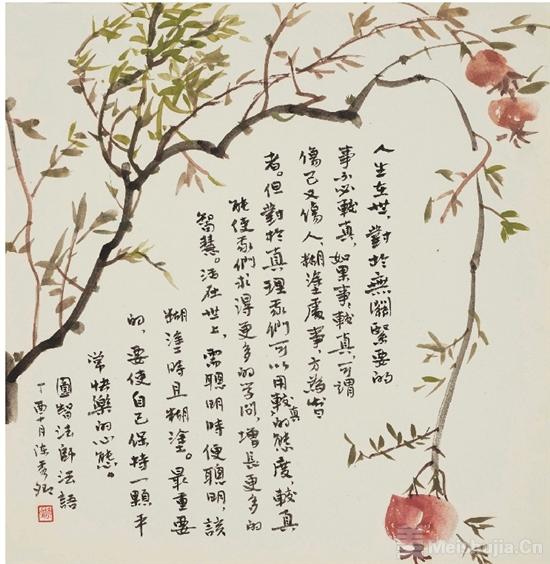 人生在世,對於無關緊要的
事不必較真,如果事事較真,可謂
傷己又傷人,糊塗處事,方為智
者。但對於真理我們可以用較真的態度,較真
能使我們求得更多的學問,增長更多的
智慧。活在世上,需聰明時便聰明,該
糊塗時且糊塗。最重要
的,要使自己保持一顆平
常快樂的心態。
圓智法師法語
丁酉十月
Meishujia.Cn